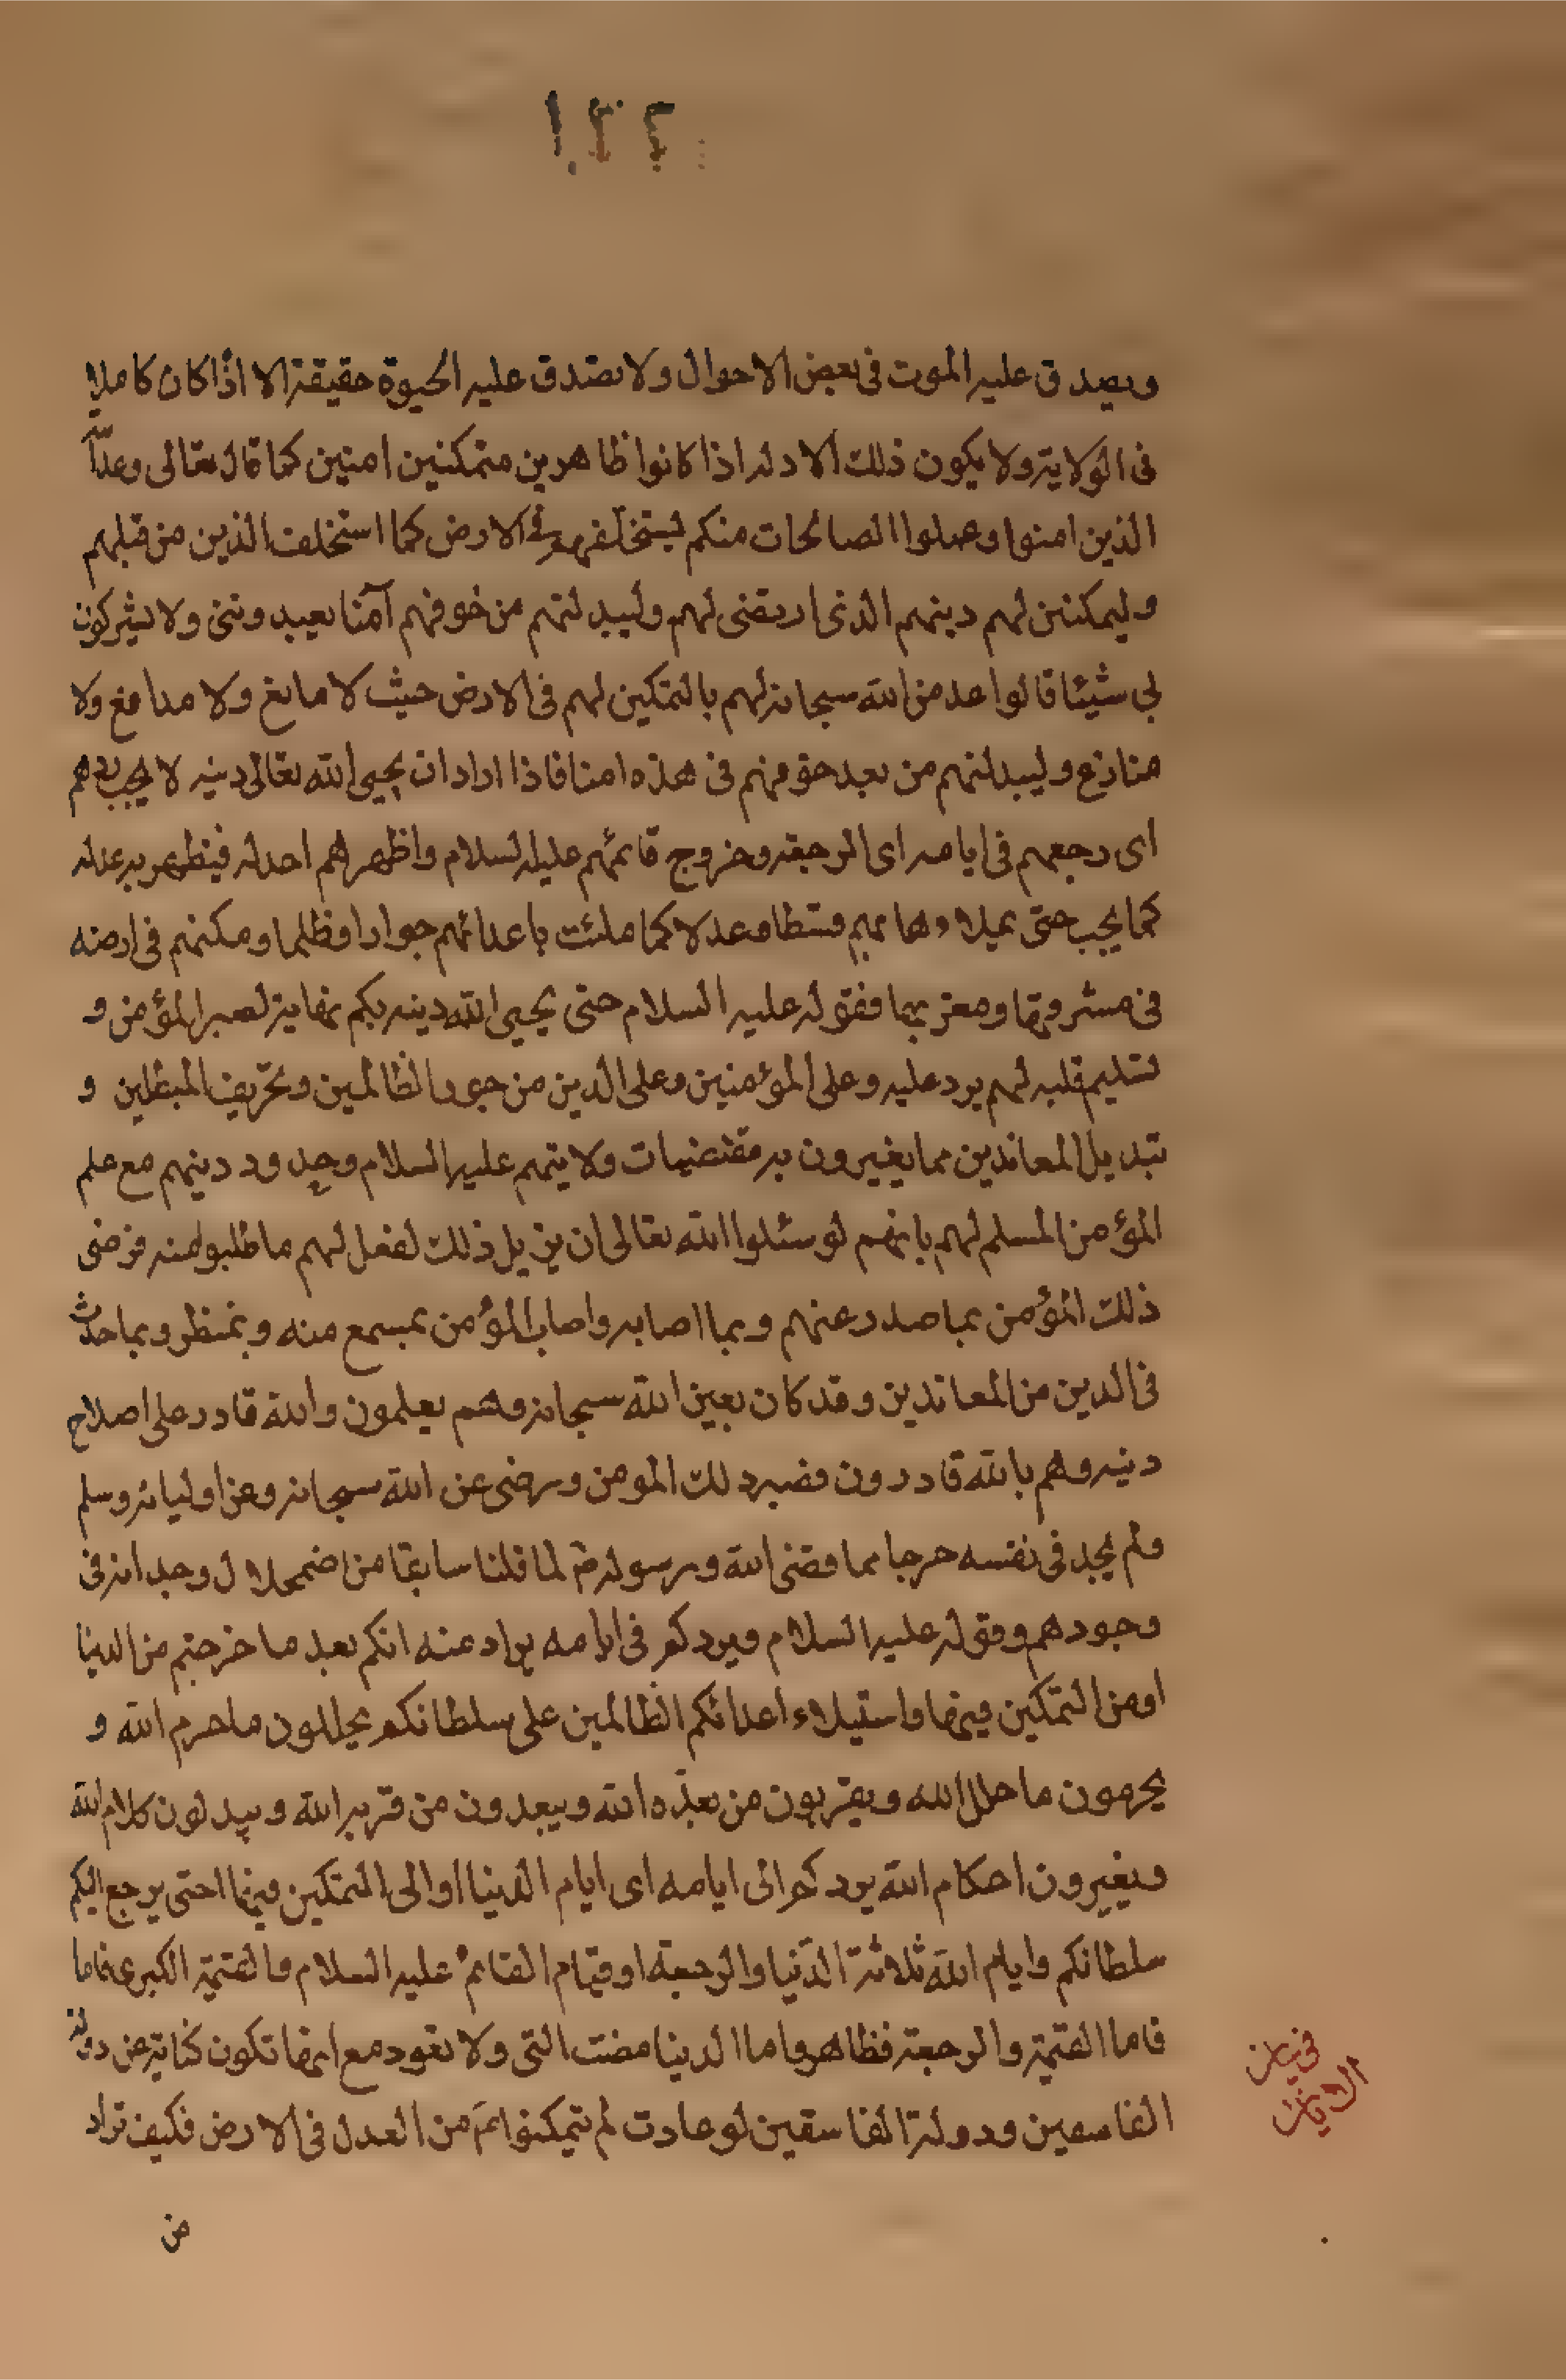 ويصدق عليه الموت في بعض الاحوال ولا يصدق عليه الحيوة حقيقة الا اذا كان كاملا
في الولاية ولا يكون ذلك الا دله اذا كانوا ظاهرين متمكنين امنين كما قال تعالى وعد الله
الذين امنوا وعملوا الصالحات منكم ليستخلفهم في الارض كما استخلف الذين من قبلهم
وليمكنن لهم دينهم الذي ارتضى لهم وليبدلنهم من خوفهم آمنا يعبدونني ولا يشركون
بي شيئا قالوا عد من الله سبحانه لهم بالتمكين لهم في الارض حيث لا مانع ولا مدافع ولا
منازع وليبدلنهم من بعد خوفهم في هذه امنا فاذا اراد ان يحيى الله تعالى دينه لا يجب بهم
اى رجعهم في ايامه اى الرجعة وخروج قائمهم عليه السلام واظهرهم احدله فيظهر به عدله
كما يجب حتى يملاوها بهم قسطا وعدلا كما ملئت باعدائهم جوارا وظلما ومكنهم في ارضه
في مشرقها ومغربها فقوله عليه السلام حتى يحيى الله دينه بكم نهاية لصبر المؤمن و
تسليم قلبه لهم يرد عليه وعلى المؤمنين وعلى الدين من جور الظالمين وتحريف المبطلين و
تبديل المعاندين مما يغيرون به مقتضيات ولايتهم عليه السلام وحدود دينهم مع علم
المؤمن المسلم لهم بانهم لو سئلوا الله تعالى ان يزيل ذلك لفعل لهم ما طلبوا منه فرضى
ذلك المؤمن بما صدر عنهم وبما اصابه واصاب المؤمن بمسمع منه وبمنظر وبما حدث
في الدين من المعاندين وقد كان بعين الله سبحانه وهم يعلمون والله قادر على اصلاح
دينه وهم بالله قادرون فصبر ذلك المومن ورضى عن الله سبحانه وعن اوليائه وسلم
ولم يجد في نفسه حرجا مما قضى الله ورسوله لما قلنا سابقا من اضمحلال وجدانه في
وجودهم وقوله عليه السلام ويردكم في ايامه يراد عنه انكم بعد ما خرجتم من الدنيا
او من التمكين فيها واستيلاء اعدائكم الظالمين على سلطانكم يحللون ما حرم الله و
يحرمون ما حلل الله ويقربون من بعده الله ويبعدون من قربه الله ويبدلون كلام الله
ويغيرون احكام الله يردكم الى ايامه اى ايام الدنيا او الى التمكين فيها حتى يرجع اليكم
سلطانكم وايام الله ثلاثة الدنيا والرجعة او قيام القائم عليه السلام والقيمة الكبرى فاما
فاما القيمة والرجعة فظاهر واما الدنيا مضت التي ولا تعود مع انها تكون كناية من دولة
الفاسقين ودولة الفاسقين لو عادت لم تتمكنوا ائم من العدل في الارض فكيف تراد
من
في بيان